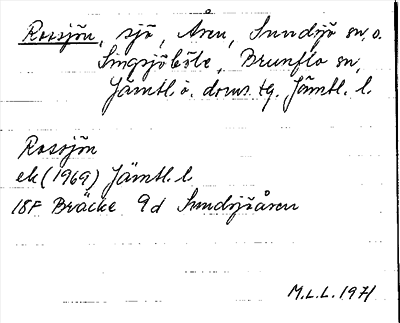 Rossjön, sjö, Åsen, Sundsjö sn, o.
Singsjöböle, Brunflo sn,
Jämtl. ö. doms. tg. Jämtl. l.
Rossjön
ek (1969) Jämtl. l.
18F Bräcke 9d Sundsjöåsen
M.L.L. 1971